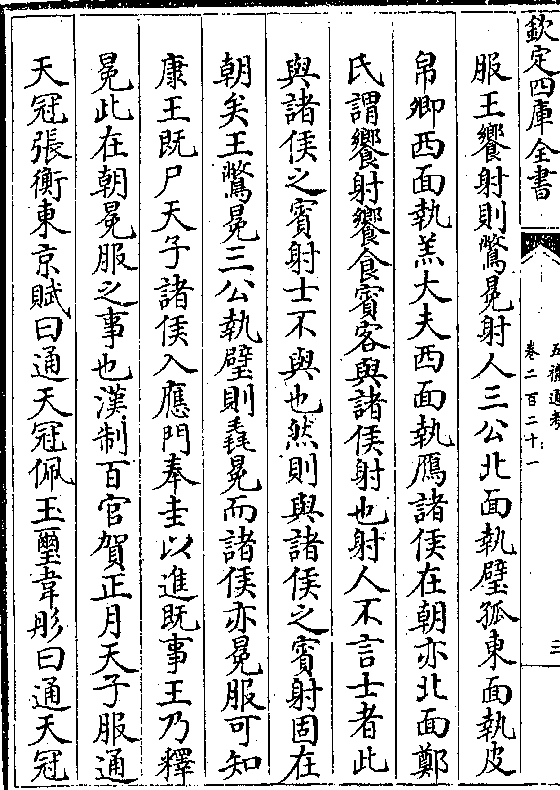 欽定四庫全書
五禮通考
卷二百二十一
三
服王饗射則鷩冕射人三公北面執璧孤東面執皮
帛卿西面執羔大夫西面執鴈諸侯在朝亦北面鄭
氏謂饗射饗食賓客與諸侯射也射人不言士者此
與諸侯之賓射士不與也然則與諸侯之賓射固在
朝矣王鷩冕三公執璧則毳冕而諸侯亦冕服可知
康王既尸天子諸侯入應門奉圭以進既事王乃釋
冕此在朝冕服之事也漢制百官賀正月天子服通
天冠張衡東京賦曰通天冠佩玉璽韋彤曰通天冠